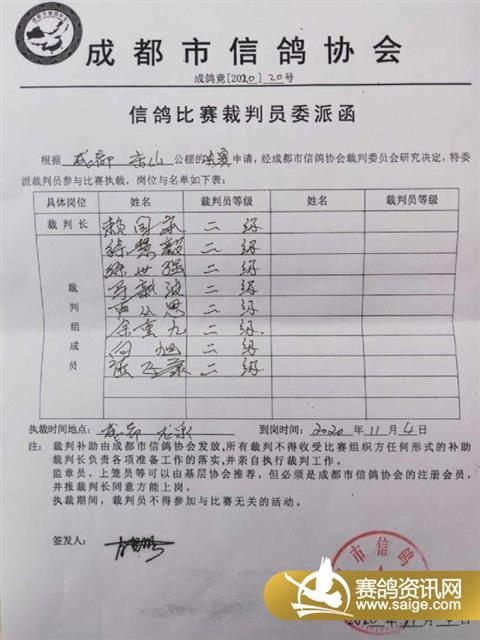 成都市信鸽协会
成鸽竞[2020]20号
信鸽比赛裁判员委派函
根据 成都 公棚的决赛申请，经成都市信鸽协会裁判委员会研究决定，特委
派裁判员参与比赛执裁，岗位与名单如下表：
具体岗位 姓名 裁判员等级 姓名 裁判员等级
裁判长 赖国 二级
裁判组成员
徐 二级
徐世强 二级
二级
贾 二级
余重九 二级
向旭 二级
张 二级
执裁时间地点： 成都 龙泉 到岗时间：2020年11月4日
注：裁判补助由成都市信鸽协会发放，所有裁判不得收受比赛组织方任何形式的补助
裁判长负责各项准备工作的落实，并亲自执行裁判工作。
监章员、上笼员等可以由基层协会推荐，但必须是成都市信鸽协会的注册会员，
并报裁判长同意方能上岗。
执裁期间，裁判员不得参加与比赛无关的活动。
签发人：
市信鸽
2020年11月
赛鸽资讯网
www.saige.com